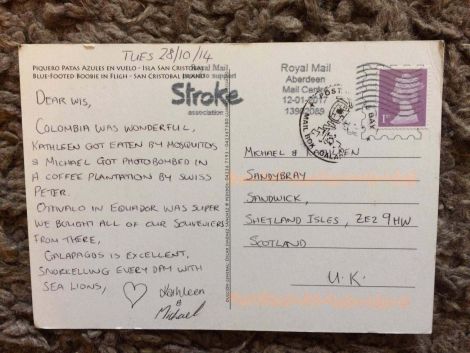 TUES 28/10/14
PIQUERO PATAS AZULES EN VUELO - ISLA SAN CRISTOBAL
BLUE-FOOTED BOOBIE IN FLIGH - SAN CRISTOBAL ISLAND
DEAR WIS,
COLOMBIA WAS WONDERFULL,
KATHLEEN GOT EATEN BY MOSQUITOS
& MICHAEL GOT PHOTOBOMBED IN
A COFFEE PLANTATION BY SWISS
PETER.
OTIVALO IN EQUADOR WAS SUPER
WE BOUGHT ALL OF OUR SOUVENIERS
FROM THERE,
GALAPAGOS IS EXCELLENT,
SNORKELLING EVERY DAY WITH
SEA LIONS,
Kathleen
&
Michael
Royal Mail
to support
Stroke
association
Royal Mail
Aberdeen
Mail Centre
12-01-2017
1st
MICHAEL & KATHLEEN
SANDYBRAY
SANDWICK,
SHETLAND ISLES, ZE2 9HW
SCOTLAND
U.K.